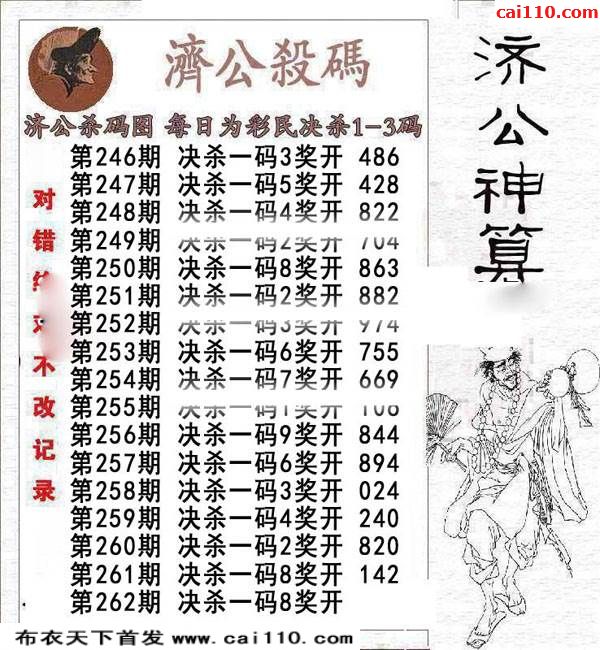 cai110.com
濟公殺碼
济公杀码图 每日为彩民决杀1-3码
第246期 决杀一码3奖开 486
第247期 决杀一码5奖开 428
第248期 决杀一码4奖开 822
第249期 决杀一码2奖开 704
第250期 决杀一码8奖开 863
第251期 决杀一码2奖开 882
第252期 决杀一码3奖开 974
第253期 决杀一码6奖开 755
第254期 决杀一码7奖开 669
第255期 决杀一码1奖开 108
第256期 决杀一码9奖开 844
第257期 决杀一码6奖开 894
第258期 决杀一码3奖开 024
第259期 决杀一码4奖开 240
第260期 决杀一码2奖开 820
第261期 决杀一码8奖开 142
第262期 决杀一码8奖开
对错 不改记录
济公神算
布衣天下首发 www.cai110.com